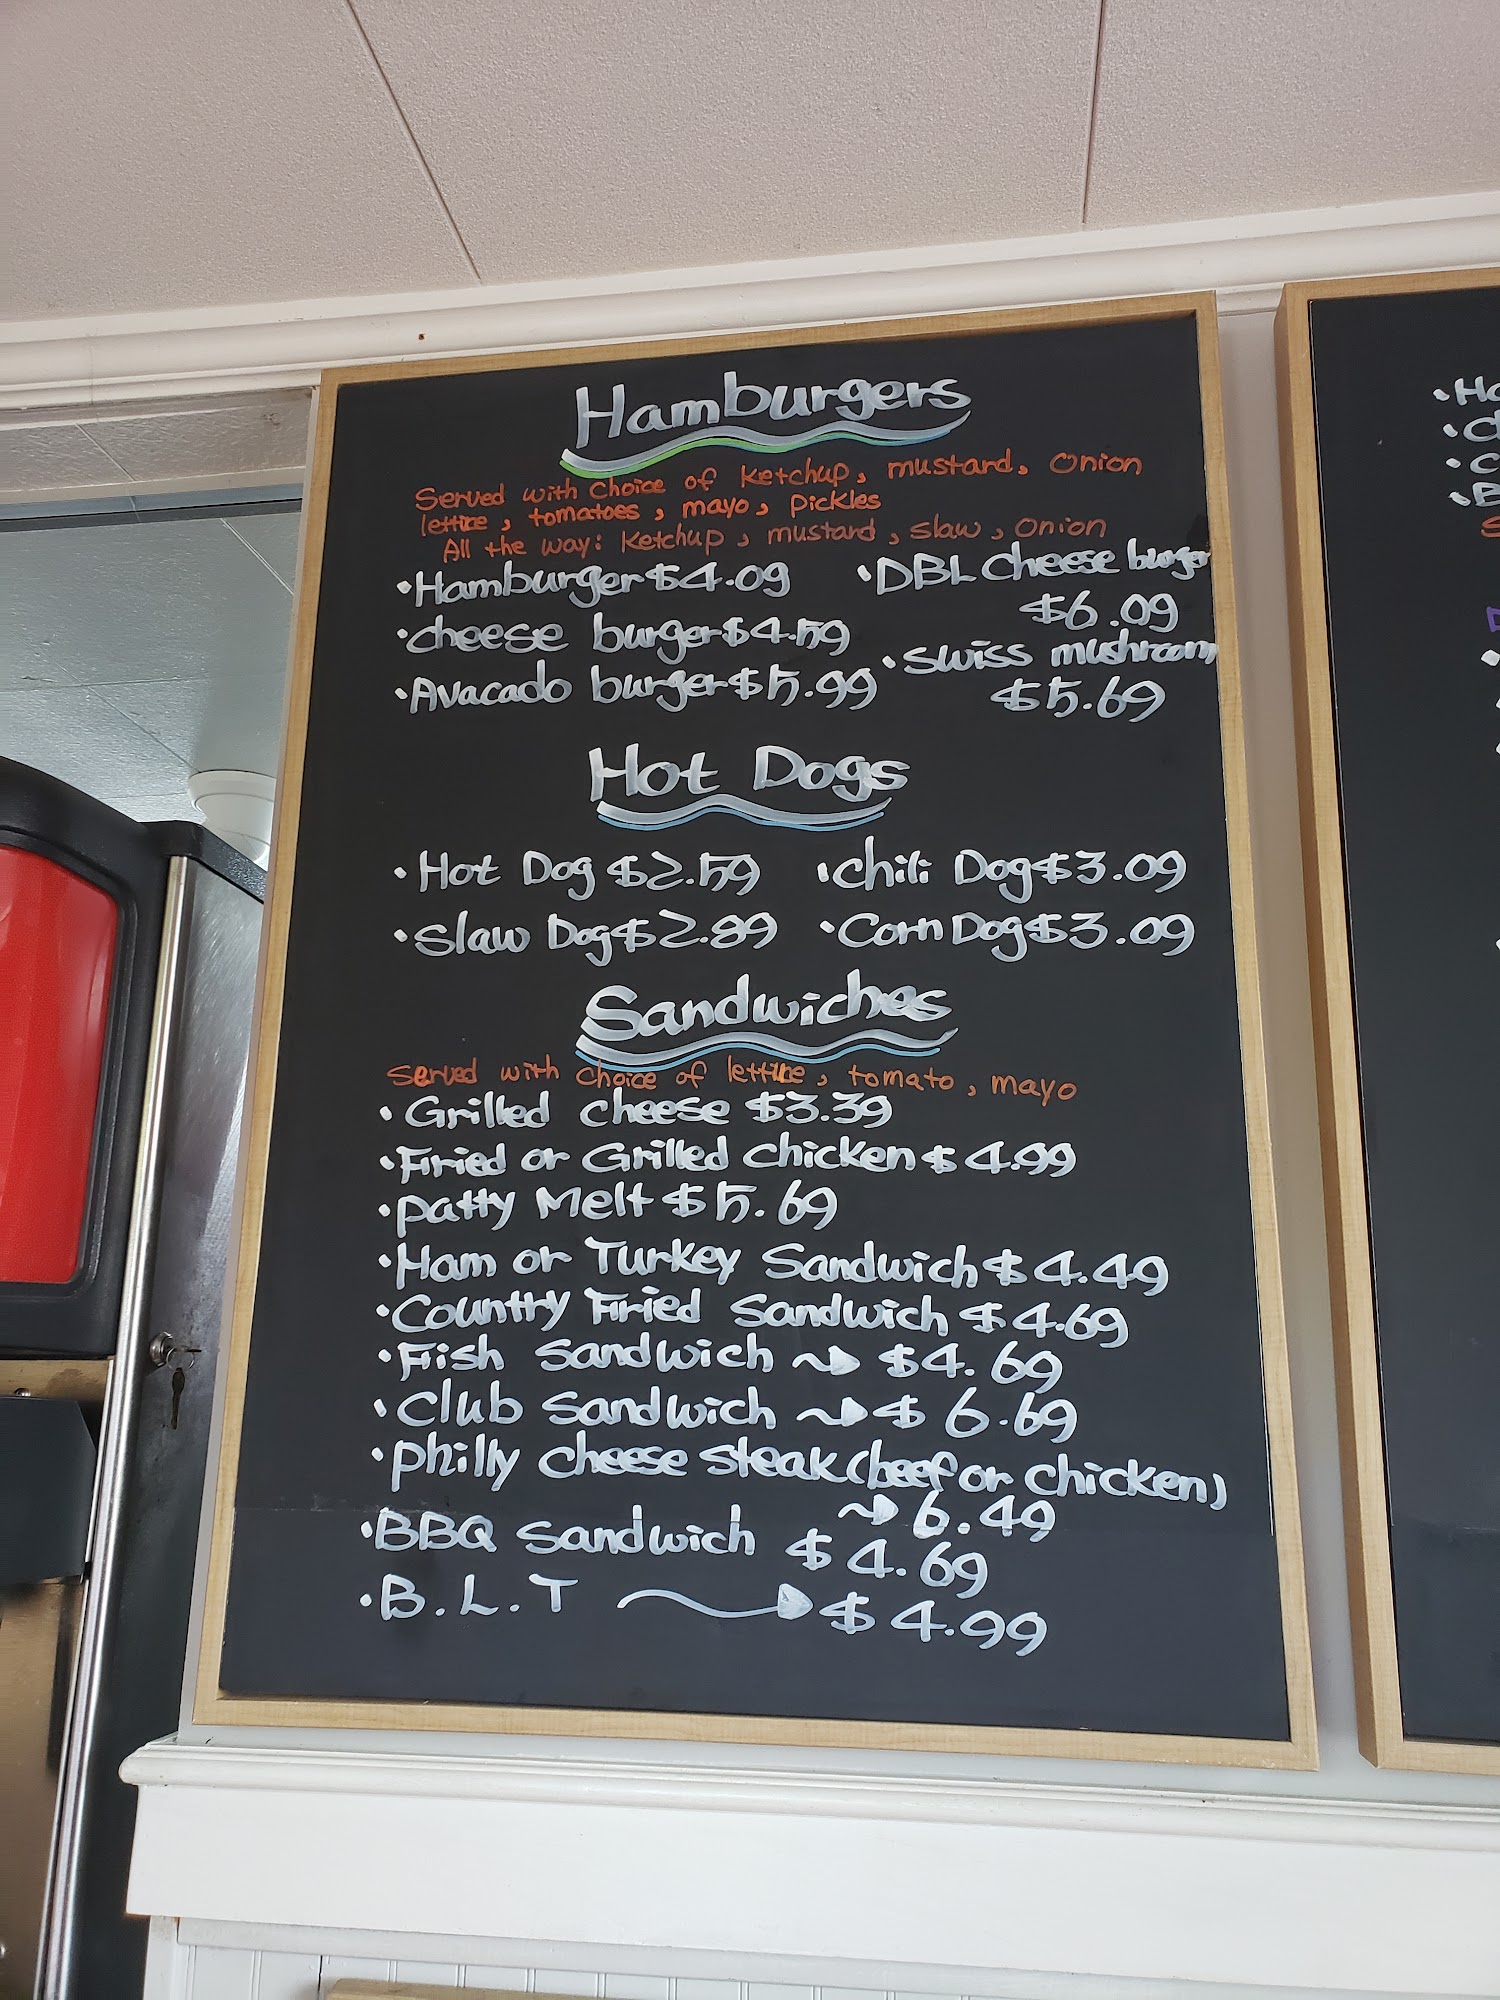 Hamburgers
Served with choice of ketchup, mustard, onion
lettuce, tomatoes, mayo, pickles
All the way: ketchup, mustard, slaw, onion
• Hamburger $4.09
• cheese burger $4.59
• Avacado burger $5.99
• DBL cheese burger
$6.09
• swiss mushroom
$5.69
Hot Dogs
• Hot Dog $2.59 • chili Dog $3.09
• Slaw Dog $2.89 • Corn Dog $3.09
Sandwiches
Served with choice of lettuce, tomato, mayo
• Grilled cheese $3.39
• Fried or Grilled chicken $4.99
• patty Melt $5.69
• Ham or Turkey Sandwich $4.49
• Country Fried Sandwich $4.69
• Fish Sandwich → $4.69
• Club Sandwich → $6.69
• philly cheese steak (beef or chicken)
→ 6.49
• BBQ Sandwich $4.69
• B.L.T → $4.99